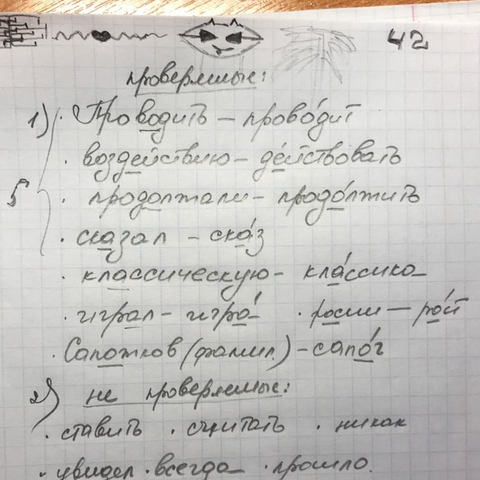 42
проверяемые:
1) · Проводить – прово́дит
· воздействию – де́йствовать
5 · продолжали – продо́лжить
· сказал – ска́з
· классическую – кла́ссика
· играл – игра́ · росии — ро́й
· Сапожков (фамил.) – сапо́г
2) не проверяемые:
· ставить · считать · никак
· увидел · всегда · прошло.